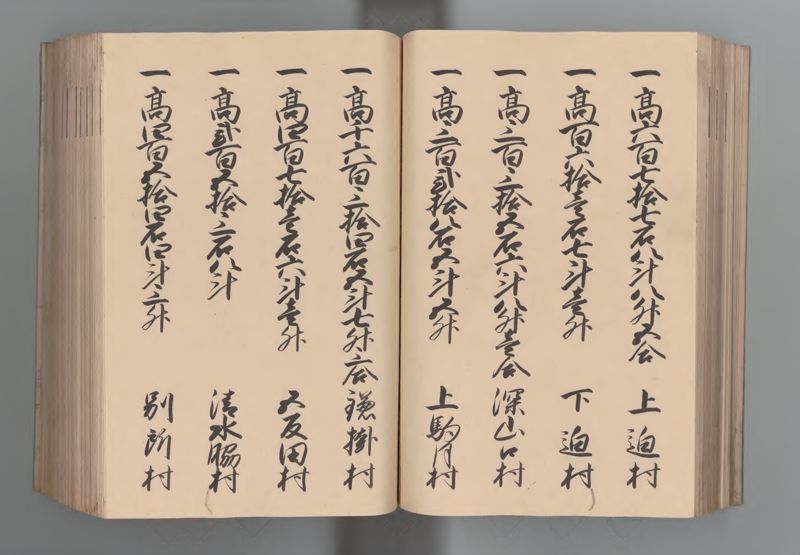 一高六百七拾七石八斗八升五合 上迫村
一高百六拾壱石七斗壱升 下迫村
一高三百三拾五石六斗八升壱合 深山口村
一高三百弐拾八石五斗五升 上駒月村
一高千六百三拾四石五斗七升三合 鎌掛村
一高四百七拾壱石六斗壱升 五反田村
一高弐百五拾三石八斗 清水脇村
一高四百五拾四石四斗三升 別所村